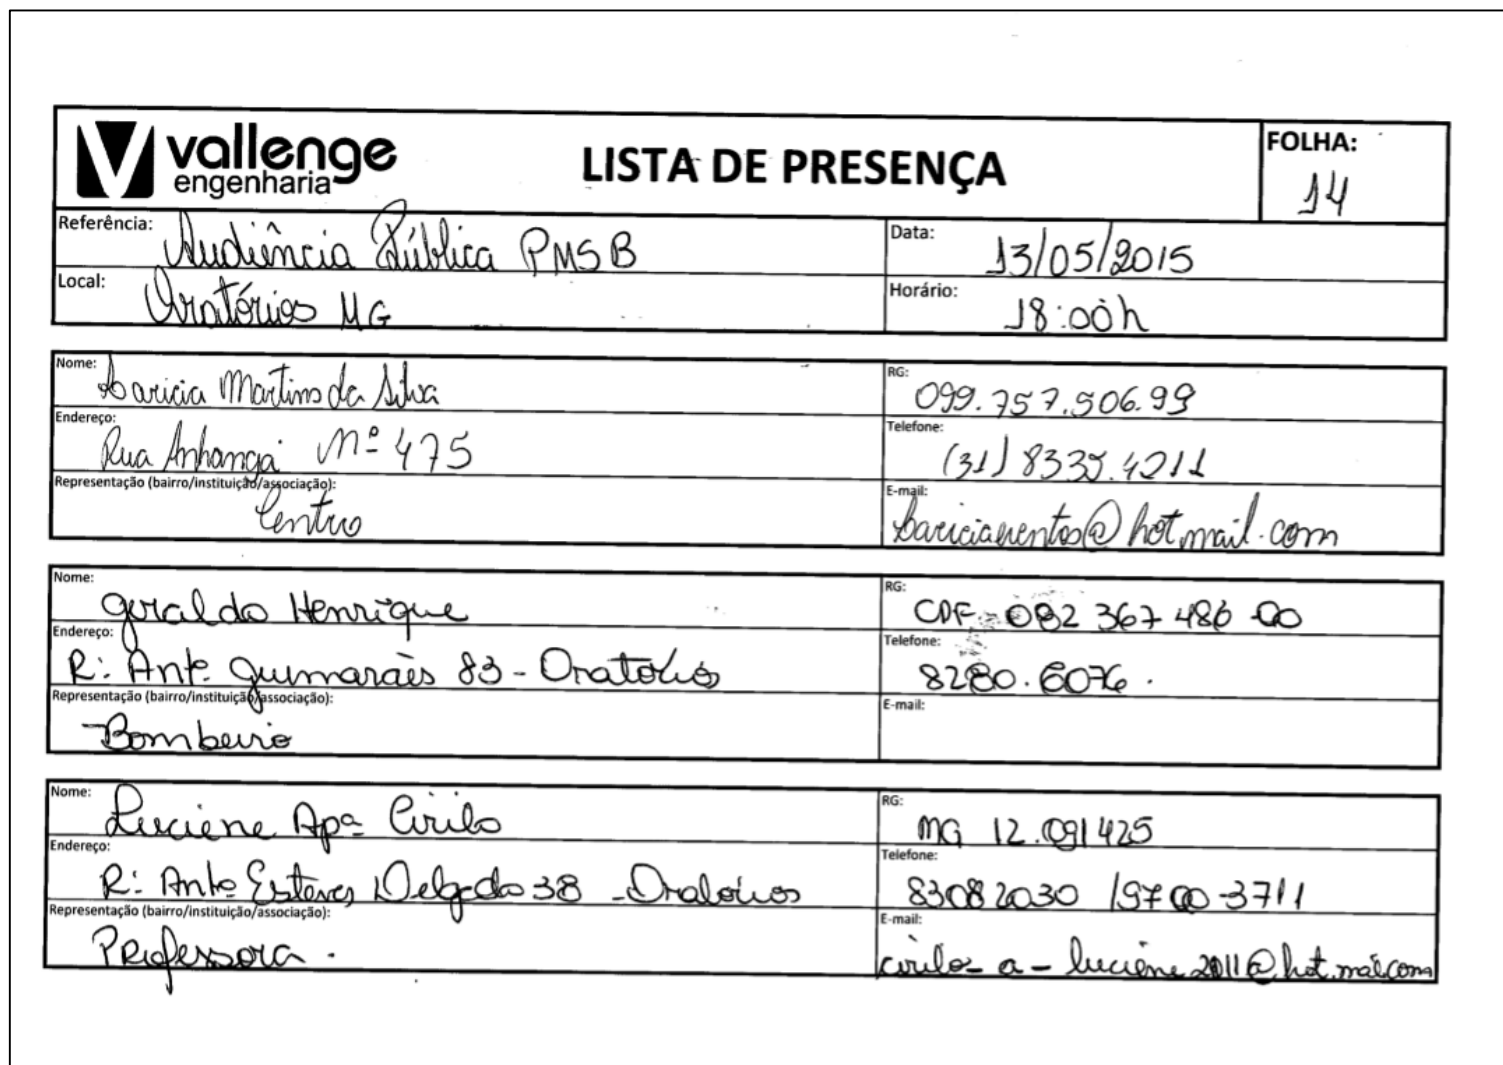 vallenge
engenharia
LISTA DE PRESENÇA
FOLHA:
14
Referência: Audiência Pública PMSB
Data: 13/05/2015
Local: Oratórios MG
Horário: 18:00h
Nome: Laricia Martins da Silva
RG: 099.757.506.99
Endereço: Rua Anhangá Nº 475
Telefone: (31) 8335.4211
Representação (bairro/instituição/associação): Centro
E-mail: @hotmail.com
Nome: Geraldo Henrique
RG: CPF - 082 367 486 00
Endereço: R: Antº Guimarães 83 - Oratórios
Telefone: 8280.6076.
Representação (bairro/instituição/associação): Bombeiro
E-mail:
Nome: Luciene Apª Cirilo
RG: MG 12.091425
Endereço: R: Antº Esteves Delgado 38 - Oratórios
Telefone: 83082030 / 9700-3711
Representação (bairro/instituição/associação): Professora.
E-mail: cirilo-a-luciene2011@hot.mail.com